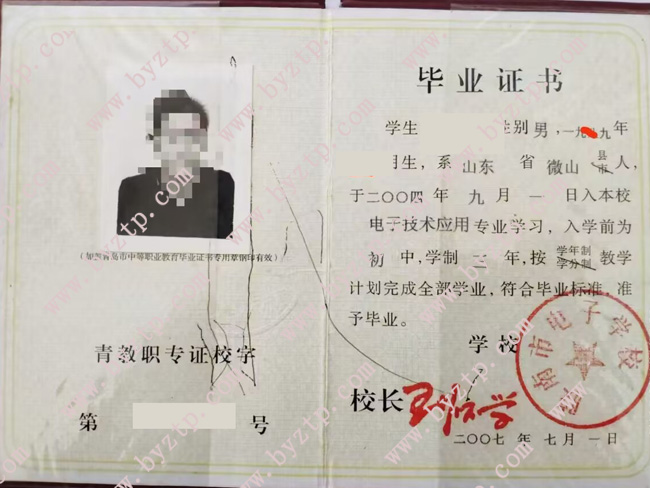 (加盖青岛市中等职业教育毕业证书专用章钢印有效)
青教职专证校字
第 号
毕业证书
学生 性别男,一九 九年
月生,系山东 省 微山 县市 人,
于二〇〇四年 九月 一 日入本校
电子技术应用专业学习,入学前为
初 中,学制 三 年,按 学年制 学分制 教学
计划完成全部学业,符合毕业标准,准
予毕业。
学校
南市电子学校
校长
二〇〇七 年 七 月 一 日
www.byztp.com